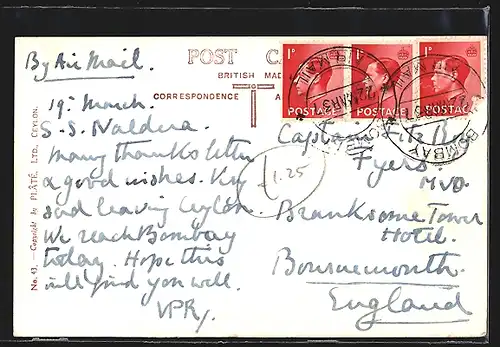 By Air Mail.
POST CA
BRITISH MAD
CORRESPONDENCE
A
1D 1D
POSTAGE POSTAGE POSTAGE
BOMBAY
19th March.
S.S. Naldera.
Many thanks letter
& good wishes. Very
sad leaving Ceylon.
We reach Bombay
today. Hope this
will find you well.
VPR,
1.25
Captain
Fyers
MVO.
Branksome Tower
Hotel.
Bournemouth.
England
No. 43. – Copyright by PLÂTÉ, LTD., CEYLON.